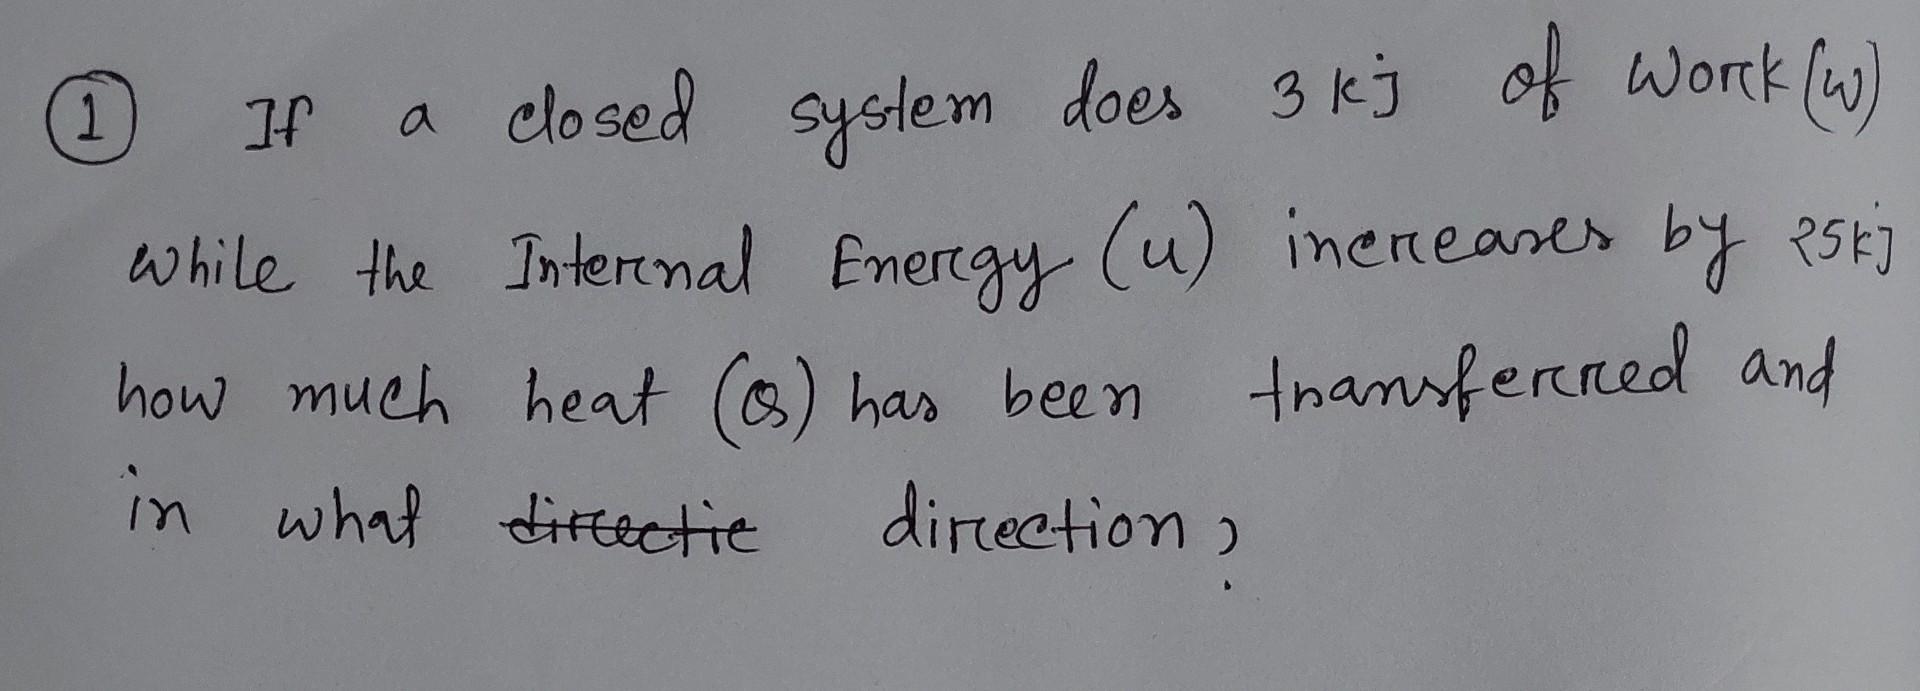 ① If a closed system does 3 kj of Work (w)
while the Internal Energy (u) increases by 25kj
how much heat (Q) has been transferred and
in what directic direction?